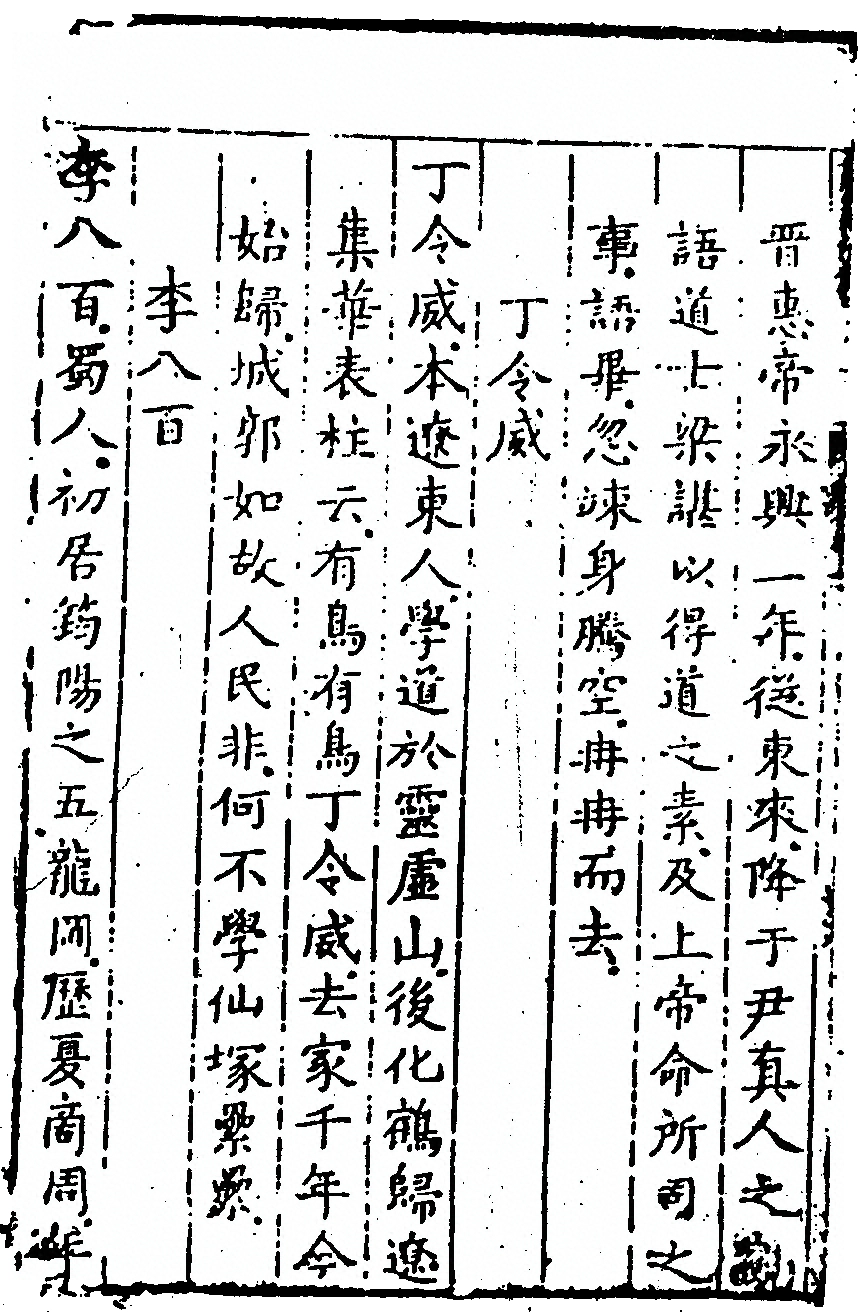 晋惠帝永興一年。從東來。降于尹真人之
語道士梁諶以得道之素。及上帝命所司之
事。語畢。忽竦身騰空。冉冉而去。
丁令威
丁令威。本遼東人。學道於靈虛山。後化鶴歸遼
集華表柱云。有鳥有鳥丁令威。去家千年今
始歸。城郭如故人民非。何不學仙塚纍纍。
李八百
李八百。蜀人。初居筠陽之五龍岡。歷夏商周。年